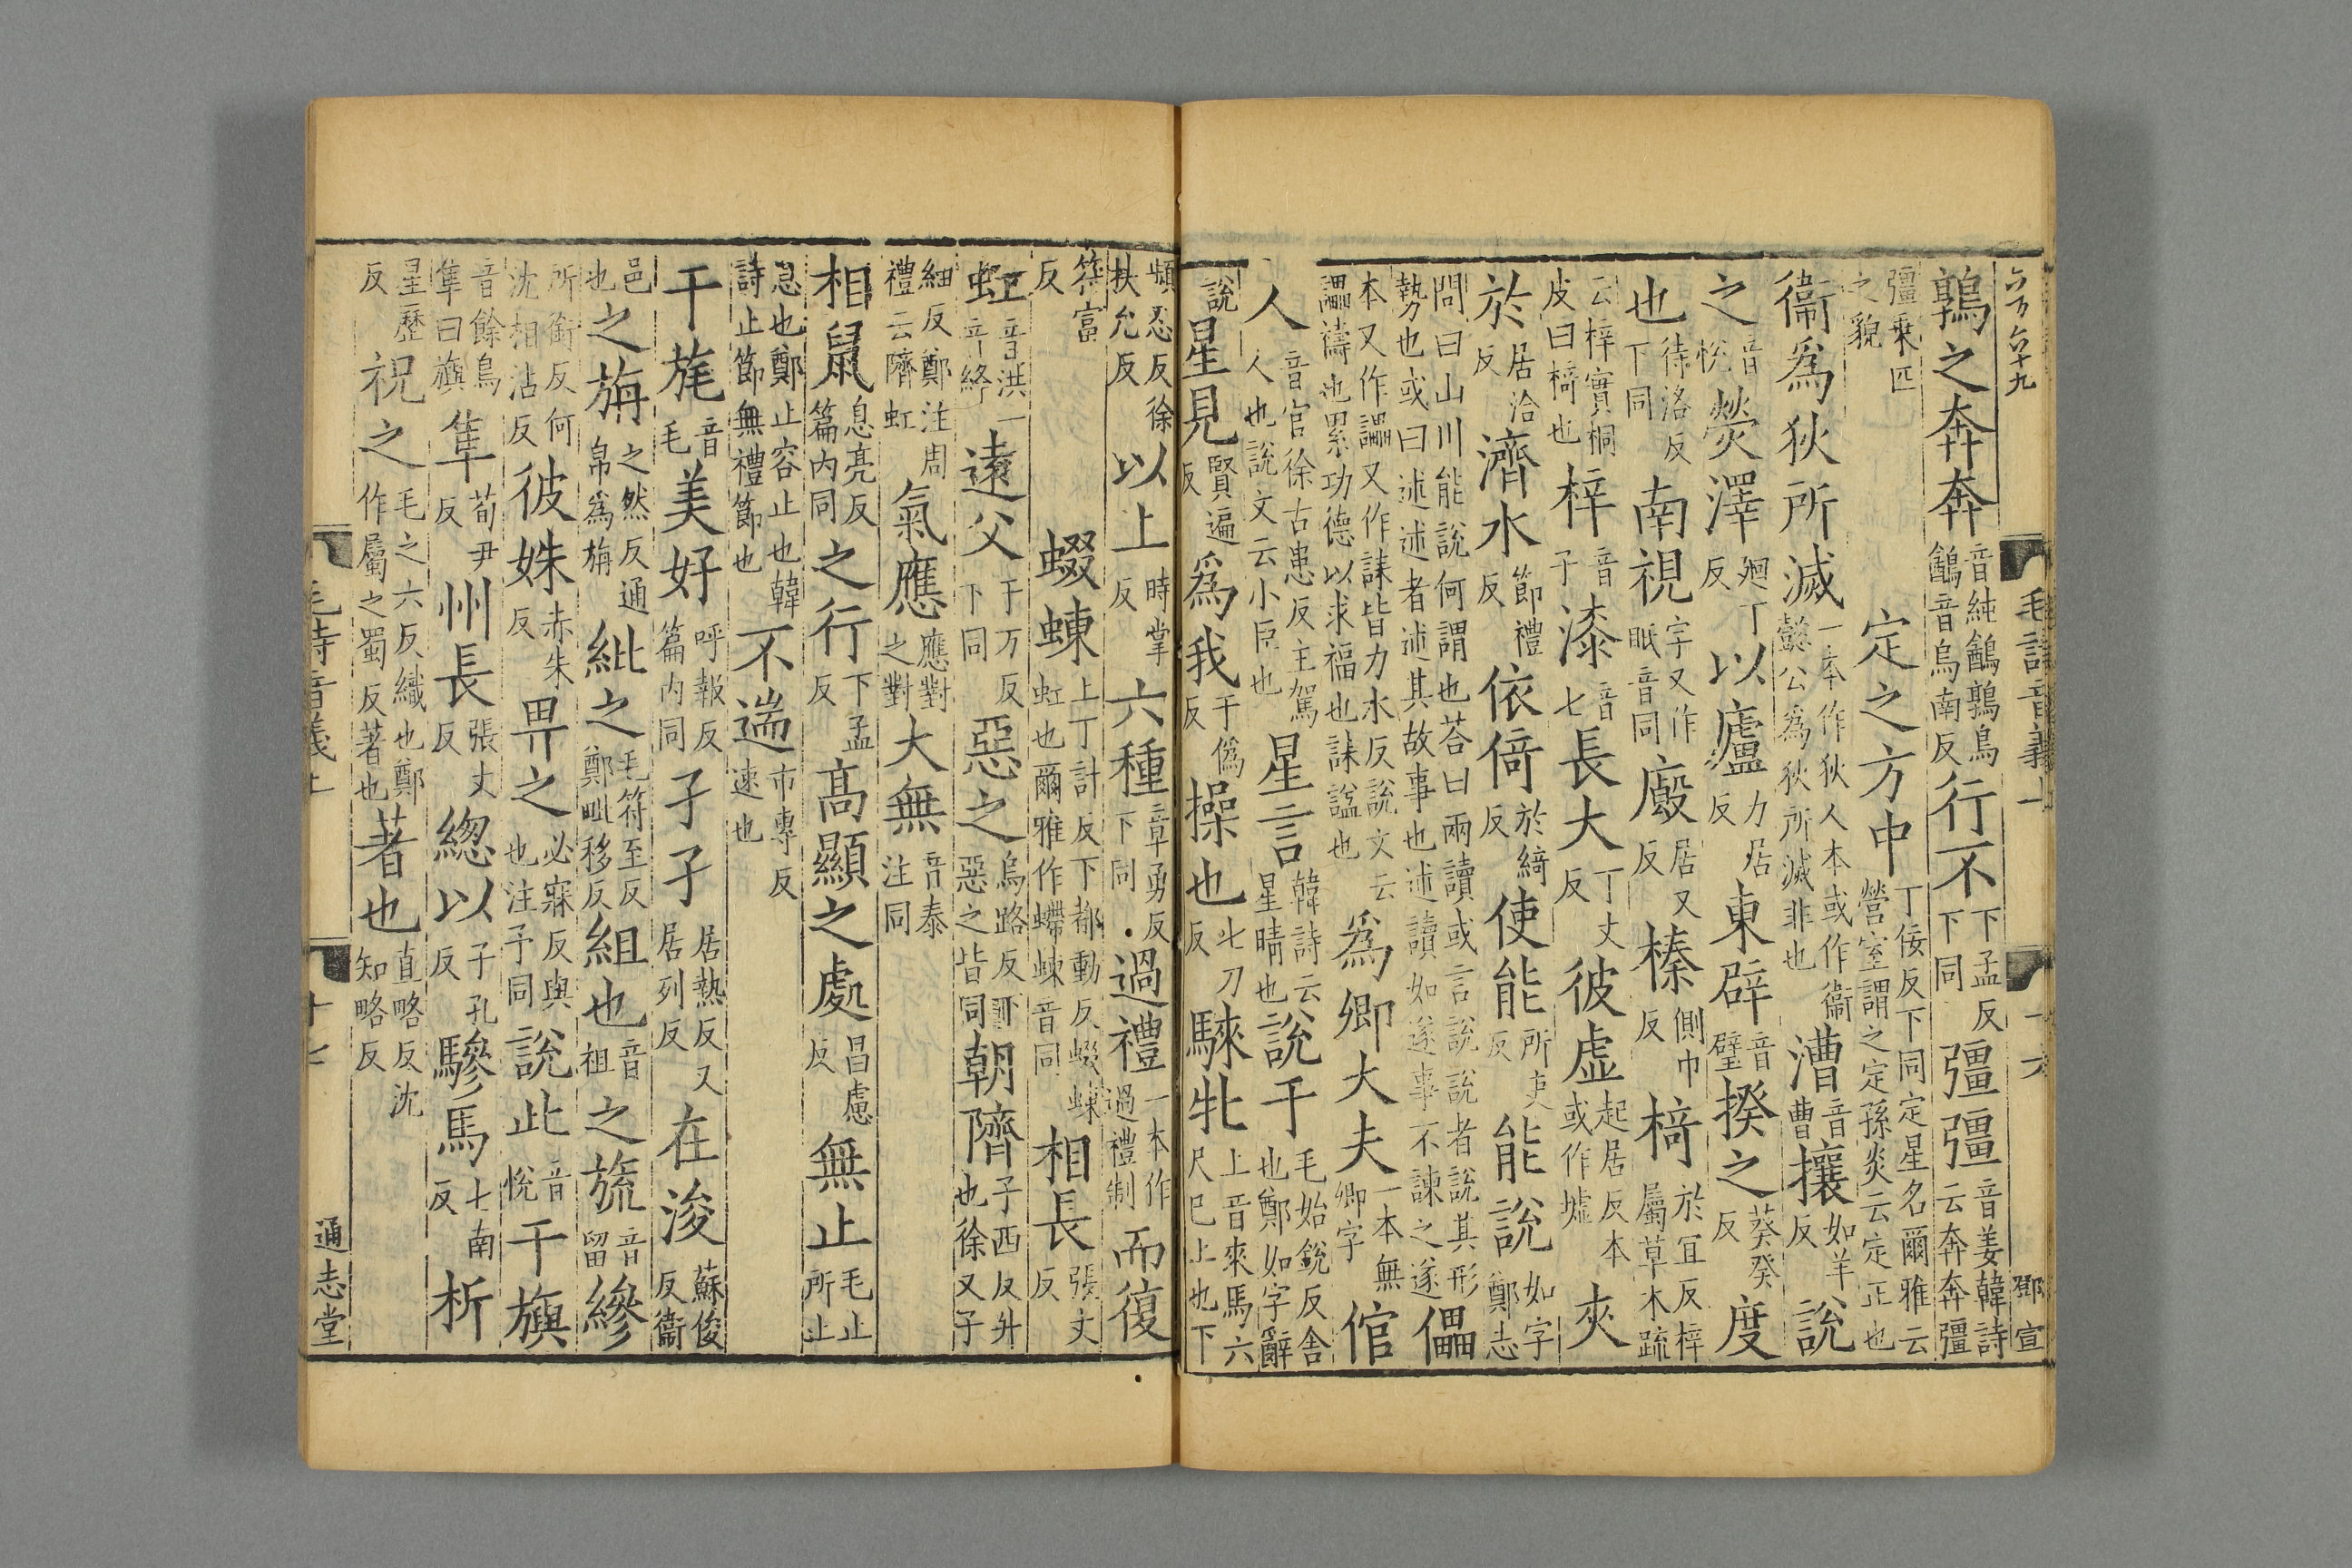 六万六十九 毛詩音義上 十六 鄧宣
鶉之奔奔音純鶴鶉鳥鶴音烏南反行不下孟反下同彊彊音姜韓詩云奔奔彊
彊乗匹之貌 定之方中丁佞反下同定星名爾雅云營室謂之定孫炎云定正也
衞爲狄所滅一本作狄人本或作衞懿公爲狄所滅非也漕音曹攘如羊反說
之音恱熒澤迴丁反以廬力居反東辟音璧揆之葵癸反度
也待洛反下同南視字又作眡音同廄居又反榛側巾反椅於宜反梓屬草木疏
云梓實桐皮曰椅也梓音子漆音七長大丁丈反彼虛起居反本或作墟夾
於居洽反濟水節禮反依倚於綺反使能所吏反能說如字鄭志
問曰山川能說何謂也荅曰兩讀或言說說者說其形勢也或曰述述者述其故事也述讀如遂事不諫之遂儡
本又作讄又作誄皆力水反說文云讄禱也累功德以求福也誄諡也爲卿大夫一本無卿字倌
人音官徐古患反主駕人也說文云小臣也星言韓詩云星晴也說于毛始銳反舍也鄭如字辭
說星見賢遍反爲我于僞反操也七刀反騋牝上音來馬六尺巳上也下
頻忍反徐扶允反以上時掌反六種章勇反下同過禮一本作過禮制而復
符富反 蝃蝀上丁計反下都動反蝃蝀虹也爾雅作螮蝀音同相長張丈反
虹音洪一音絳遠父于万反下同惡之烏路反下惡之皆同朝隮子西反升也徐又子
細反鄭注周禮云隮虹氣應應對之對大無音泰注同
相鼠息亮反篇内同之行下孟反高顯之處昌慮反無止毛止所止
息也鄭止容止也韓詩止節無禮節也不遄市專反速也
干旄音毛美好呼報反篇内同孑孑居熱反又居列反在浚蘇俊反衞
邑也之旃之然反通帛爲旃紕之毛符至反鄭毗移反組也音祖之旒音留縿
所銜反何沈相沾反彼姝赤朱反畀之必寐反與也注予同說此音恱干旟
音餘鳥隼曰旟隼荀尹反州長張丈反緫以子孔反驂馬七南反析
星歷反祝之毛之六反織也鄭作屬之蜀反著也著也直略反沈知略反
毛詩音義上 十七 通志堂